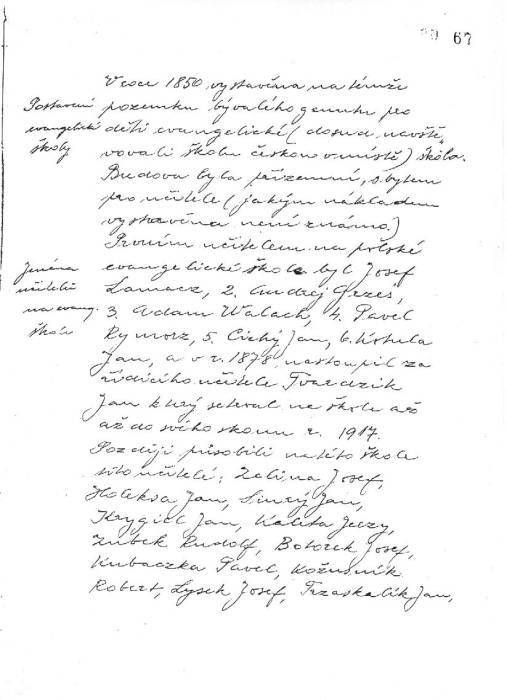 67
V roce 1850 vystavěna na témže
Postavení
evangelické
školy
pozemku bývalého gruntu pro
děti evangelické (dosud navště„
vovali školu českou v místě) škola.
Budova byla přízemní, s bytem
pro učitele (jakým nákladem
vystavěna není známo.)
Prvním učitelem na polské
Jména
učitelů
na evang.
škole
evangelické škole byl Josef
Lamacz, 2. Andrej Grzeš,
3. Adam Walach, 4. Pavel
Rymorz, 5. Cichý Jan, 6. Kotula
Jan, a v r. 1878 nastoupil za
řídícího učitele Twardzik
Jan který setrval na škole až
až do svého skonu r. 1917.
Později působili na této škole
tito učitelé: Zelina Josef,
Holeksa Jan, Jan,
Krygiel Jan, Kaleta Jerzy,
Zubek Rudolf, Botorek Josef,
Kubaczka Pavel, Kožusznik
Robert, Lysek Josef, Trzaskalik Jan,